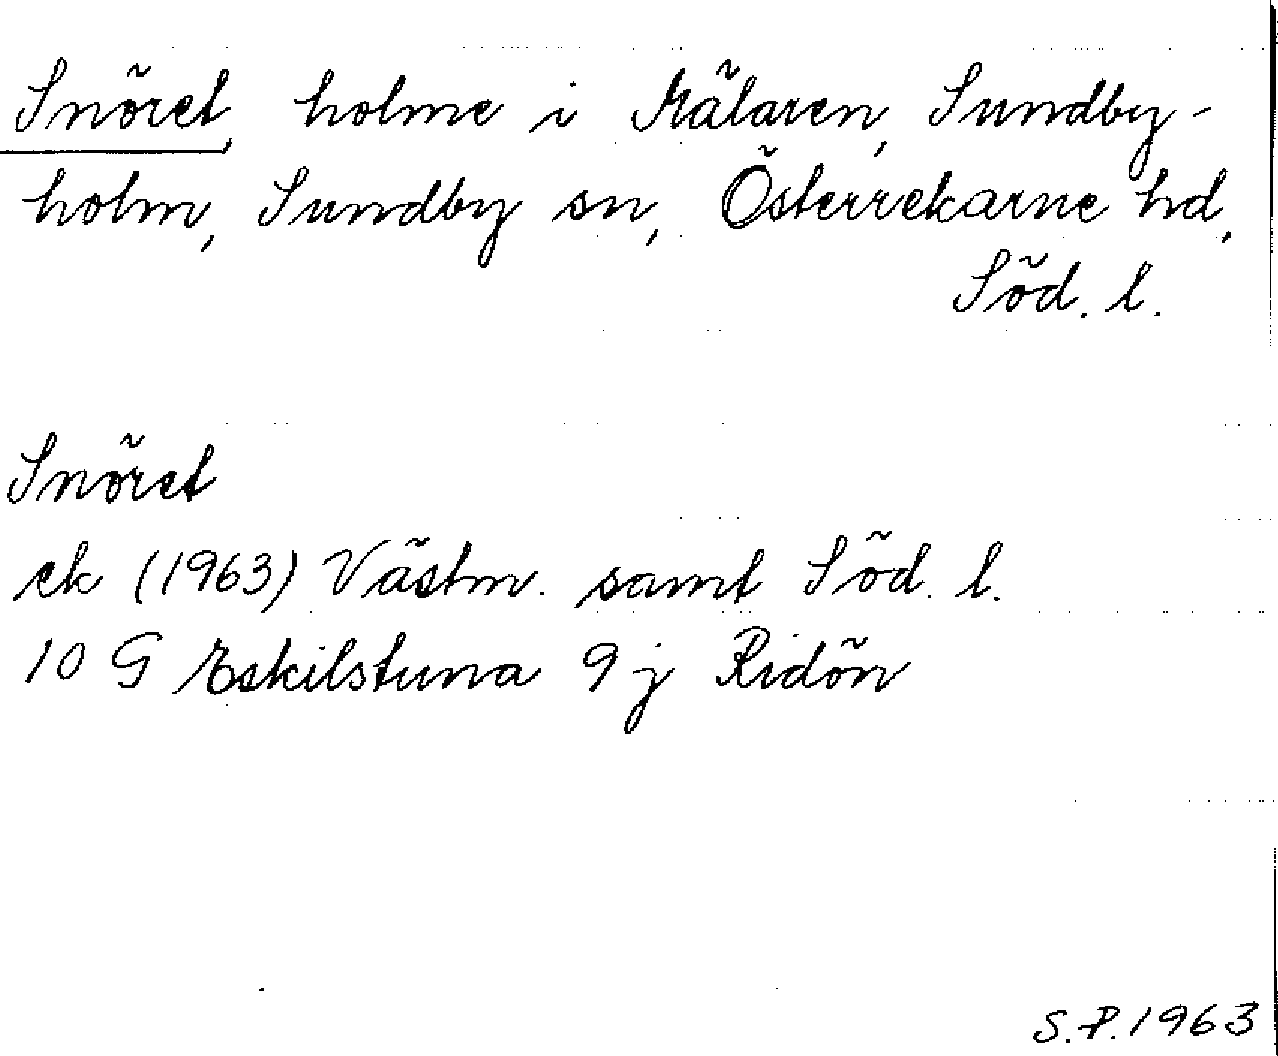 Snöret, holme i Mälaren, Sundby-
holm, Sundby sn, Österrekarne hd,
Söd. l.
Snöret
ek (1963) Västm. samt Söd. l.
10 G Eskilstuna 9 j Ridön
S.P. 1963